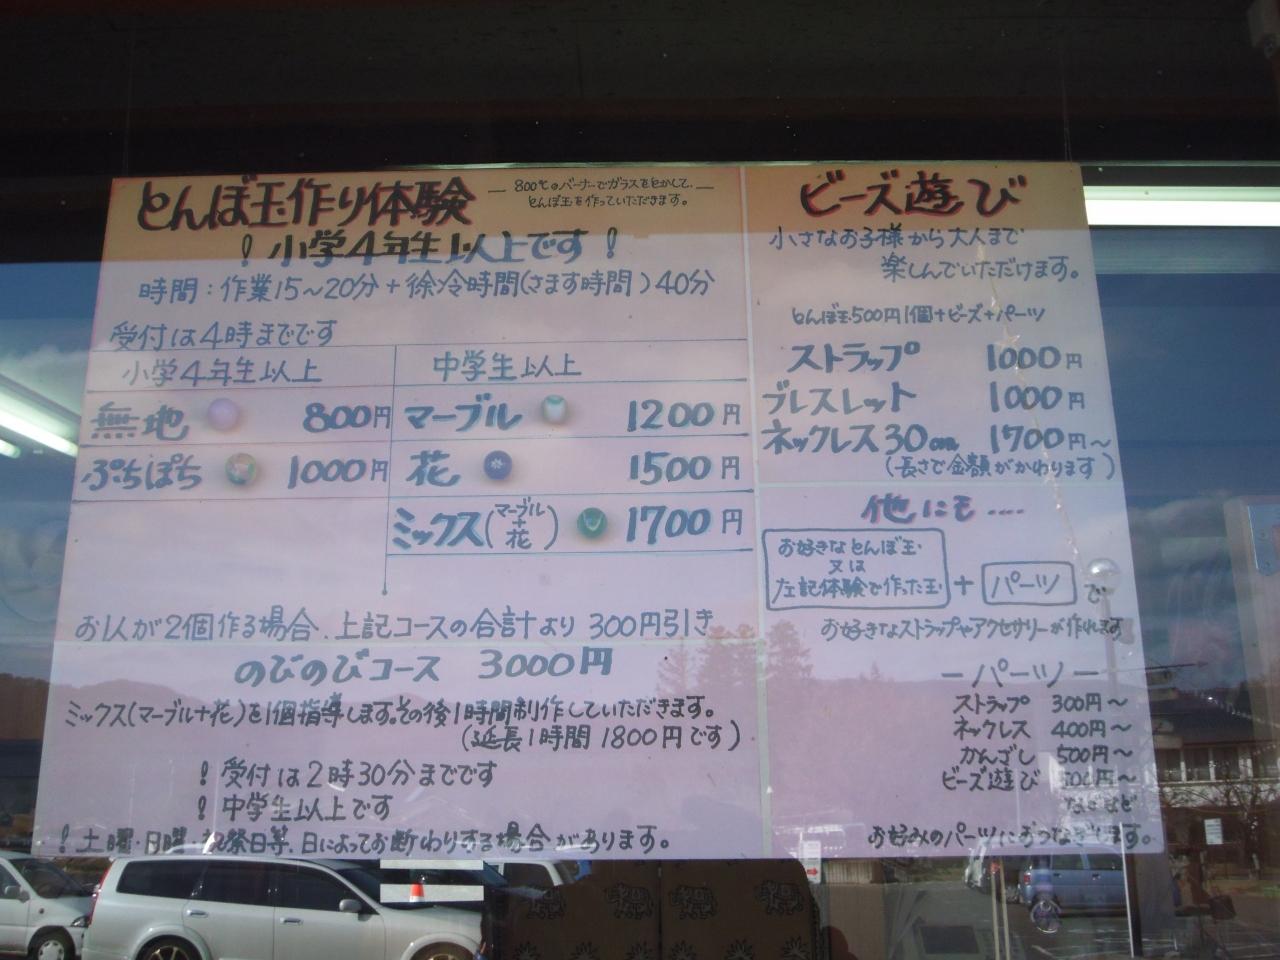 とんぼ玉作り体験
― 800℃のバーナーでガラスをとかして、―
とんぼ玉を作っていただきます。
！小学4年生以上です！
時間：作業15～20分＋徐冷時間(さます時間)40分
受付は4時までです
小学4年生以上
無地 800円
ぷちぽち 1000円
中学生以上
マーブル 1200円
花 1500円
ミックス(マーブル＋花) 1700円
お1人が2個作る場合、上記コースの合計より300円引き
のびのびコース 3000円
ミックス(マーブル＋花)を1個指導します。その後1時間制作していただきます。
(延長1時間1800円です)
！受付は2時30分までです
！中学生以上です
！土曜・日曜・祝祭日等、日によってお断わりする場合があります。
ビーズ遊び
小さなお子様から大人まで
楽しんでいただけます。
とんぼ玉500円1個＋ビーズ＋パーツ
ストラップ 1000円
ブレスレット 1000円
ネックレス30cm 1700円～
(長さで金額がかわります)
他にも‥‥
お好きなとんぼ玉
又は
左記体験で作った玉
＋ パーツ で
お好きなストラップやアクセサリーが作れます
―パーツ―
ストラップ 300円～
ネックレス 400円～
かんざし 500円～
ビーズ遊び 500円～
などなど
お好みのパーツにおつなぎします。